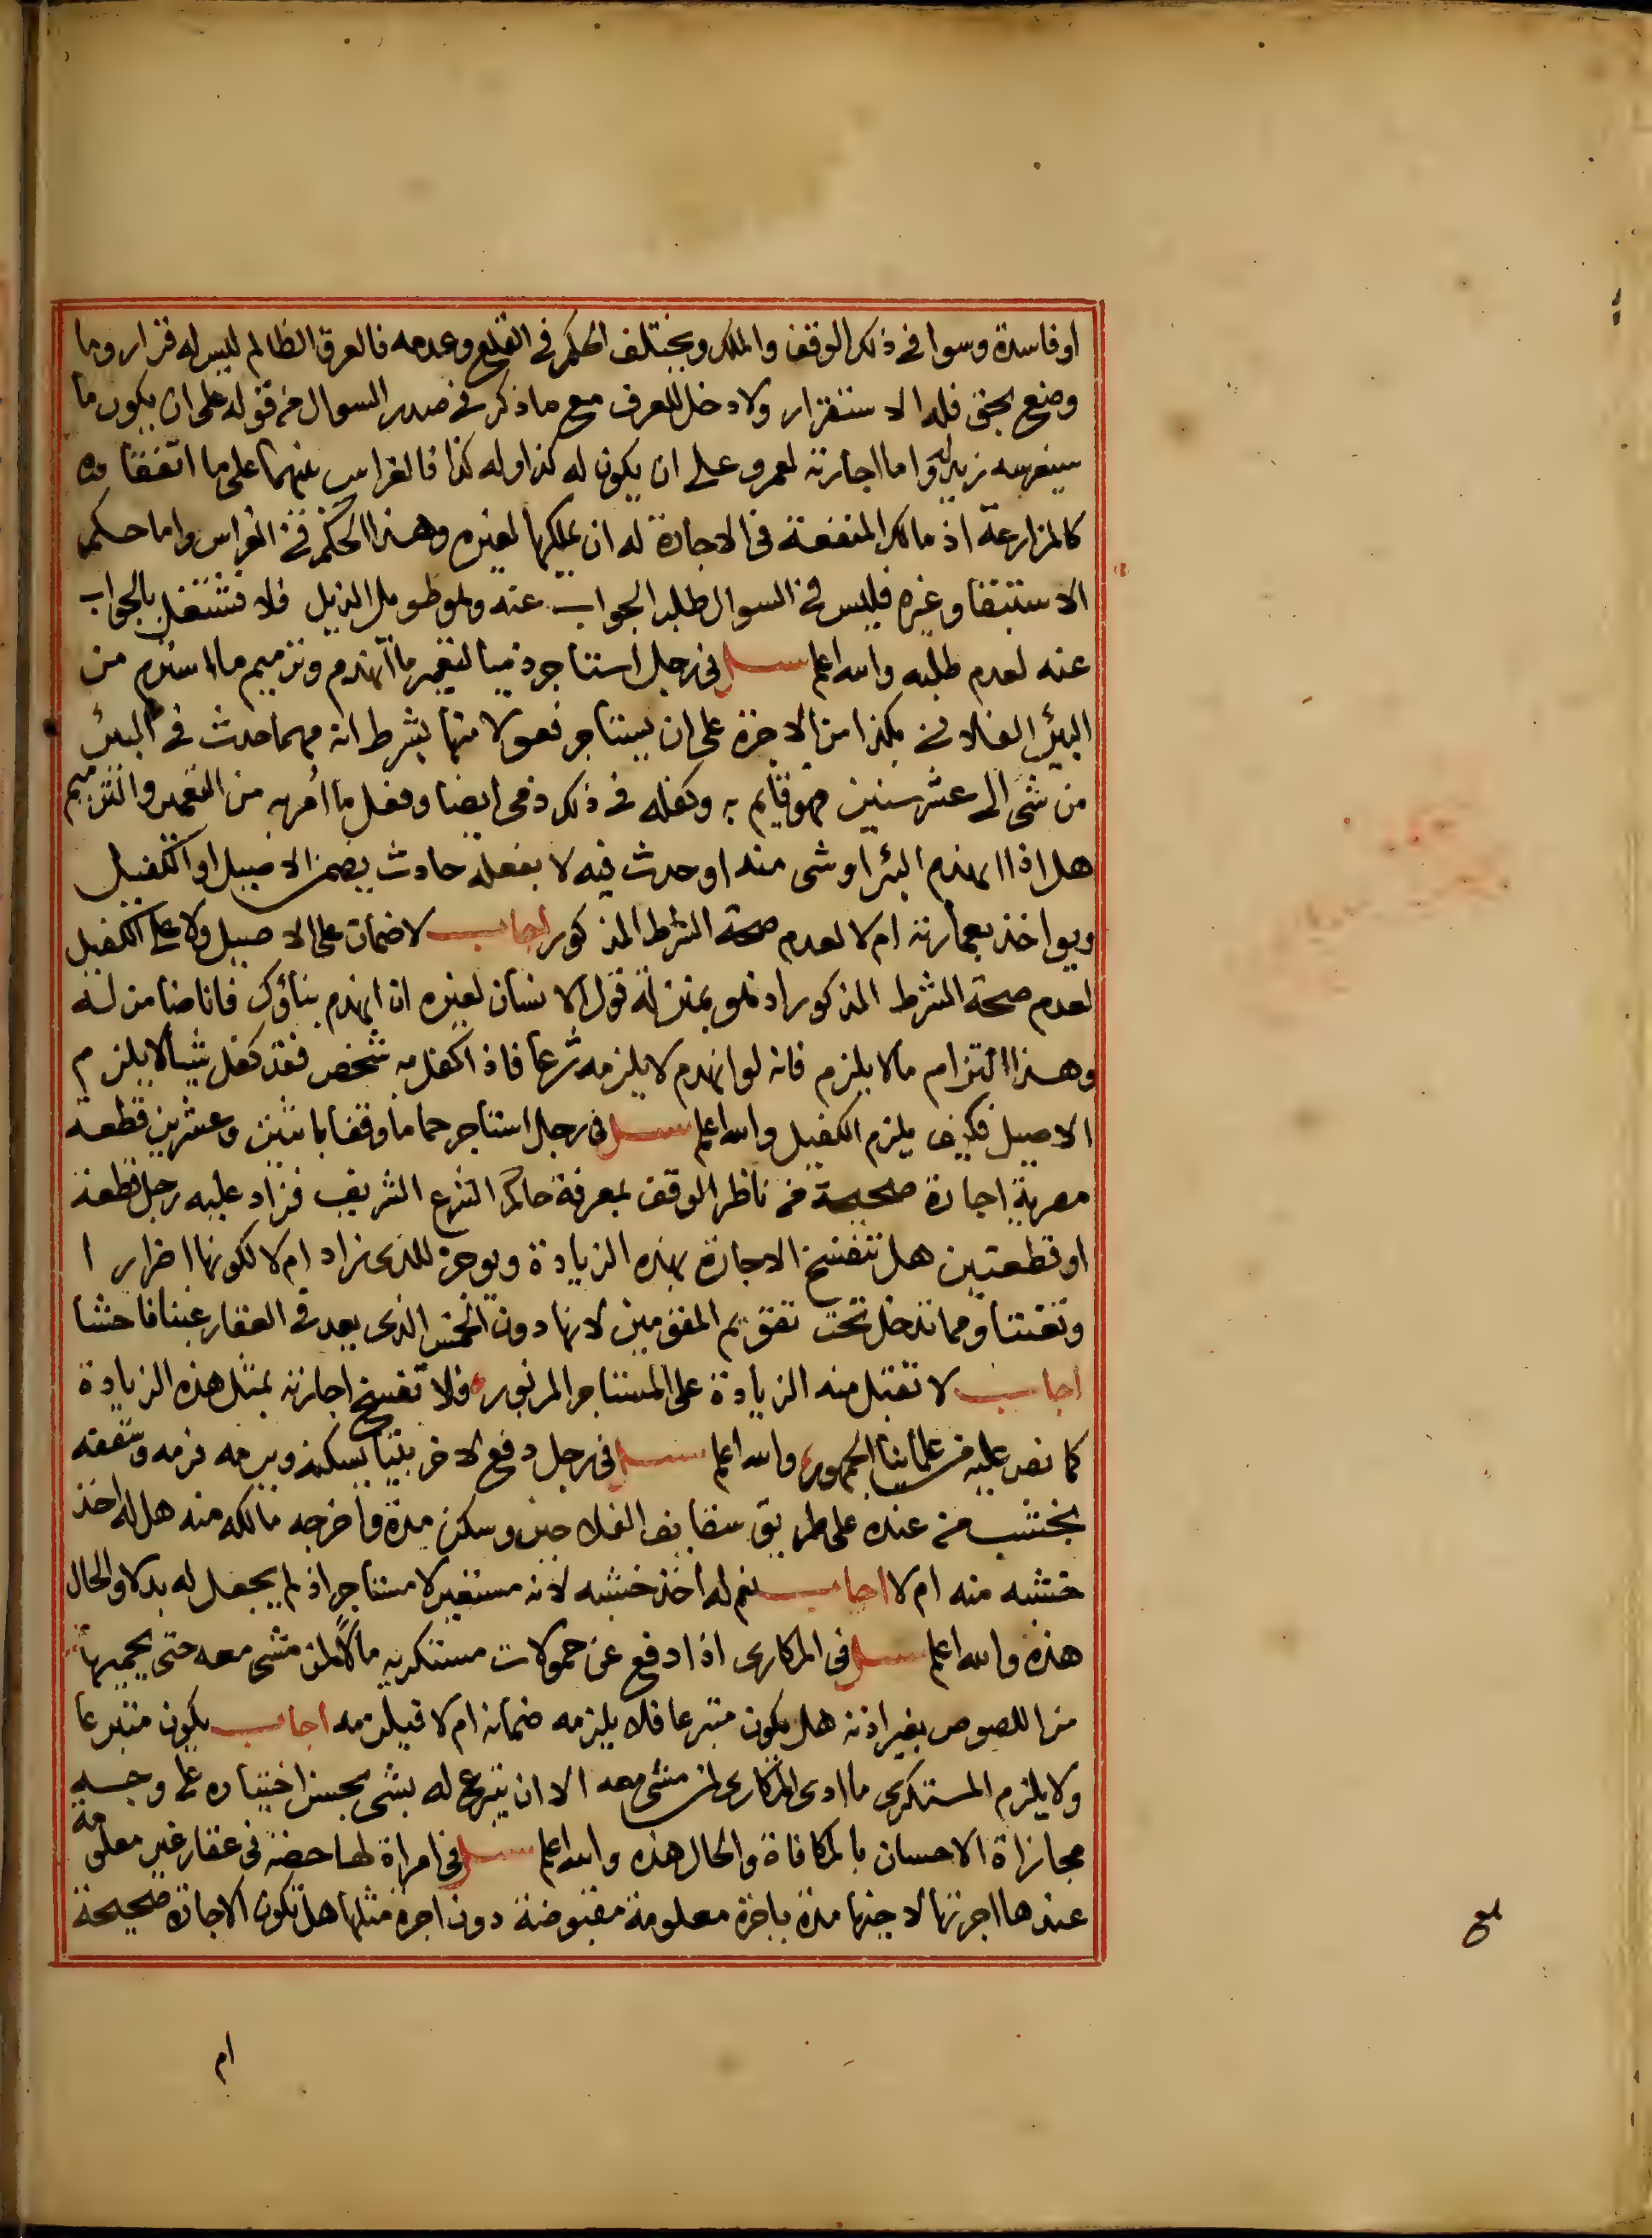 او فاسدة وسوا في ذلك الوقف والملك ويختلف الحكم في القلع وعدمه فالعرق الظالم ليس له قرار وما
وضع بحق فله الاستقرار ولا دخل للعرف مع ما ذكر في صدر السوال من قوله على ان يكون ما
سيغرسه زيد له واما اجارته لعمرو على ان يكون له كذا وله كذا فالغراس بينهما على ما اتفقا عليه
كالمزارعة اذ مالك المنفعة في الاجارة له ان يملكها لغيره وهذا الحكم في الغراس واما حكم
الاستبقا وغيره فليس في السوال طلب الجواب عنه وهو طويل الذيل فلا نشتغل بالجواب
عنه لعدم طلبه والله اعلم سئل في رجل استاجر ذميا لتعمير ما انهدم وترميم ما استرم من
البئر الفلاني بكذا من الاجرة على ان يستاجر فعولا منها بشرط انه مهما حدث في البئر
من شى الى عشر سنين فهو قايم به وكفله في ذلك ذمى ايضا وفعل ما امر به من التعمير والترميم
هل اذا انهدم البئر او شى منه او حدث فيه لا بفعله حادث يضمن الاصيل او الكفيل
ويواخذ بعمارته ام لا لعدم صحة الشرط المذكور اجاب لا ضمان على الاصيل ولا على الكفيل
لعدم صحة الشرط المذكور اذ هو بمنزلة قول الانسان لغيره ان انهدم بناؤك فانا ضامن له
وهذا التزام ما لا يلزم فانه لو انهدم لا يلزمه شرعا فاذا كفل به شخص فقد كفل شيأ لا يلزم
الاصيل فكيف يلزم الكفيل والله اعلم سئل في رجل استاجر حماما وقفا باثنين وعشرين قطعة
مصرية اجارة صحيحة من ناظر الوقف بمعرفة حاكم الشرع الشريف فزاد عليه رجل قطعة
او قطعتين هل تنفسخ الاجارة بهذه الزيادة ويوجر للذى زاد ام لا لكونها اضرارا
وتعنتا ومما تدخل تحت تقويم المقومين لانها دون الخمس الذى يعد في العقار غبنا فاحشا
اجاب لا تقبل منه الزيادة على المستاجر المزبور فلا تفسخ اجارته بمثل هذه الزيادة
كما نص عليه من علمائنا الجمهور والله اعلم سئل في رجل دفع لاخر بيتا يسكنه ويرمه فرمه وسقفه
بخشب من عنده على طريق سقايف الفلاحين وسكن مدة واخرجه مالكه منه هل له اخذ
خشبه منه ام لا اجاب نعم له اخذ خشبه لانه مستعير لا مستاجر اذ لم يجعل له بدلا والحال
هذه والله اعلم سئل في المكارى اذا دفع عن حمولات مستكريه مالا لمن مشى معه حتى يحميها
من اللصوص بغير اذنه هل يكون متبرعا فلا يلزمه ضمانه ام لا فيلزمه اجاب يكون متبرعا
ولا يلزم المستكرى ما ادى المكارى لمن مشى معه الا ان يتبرع له بشى بحسن اختياره على وجه
مجازاة الاحسان بالمكافاة والحال هذه والله اعلم سئل في امراة لها حصة في عقار غير معلومة
عندها اجرتها لاجنبها مدة باجرة معلومة مقبوضة دون اجرة مثلها هل تكون الاجارة صحيحة
ام